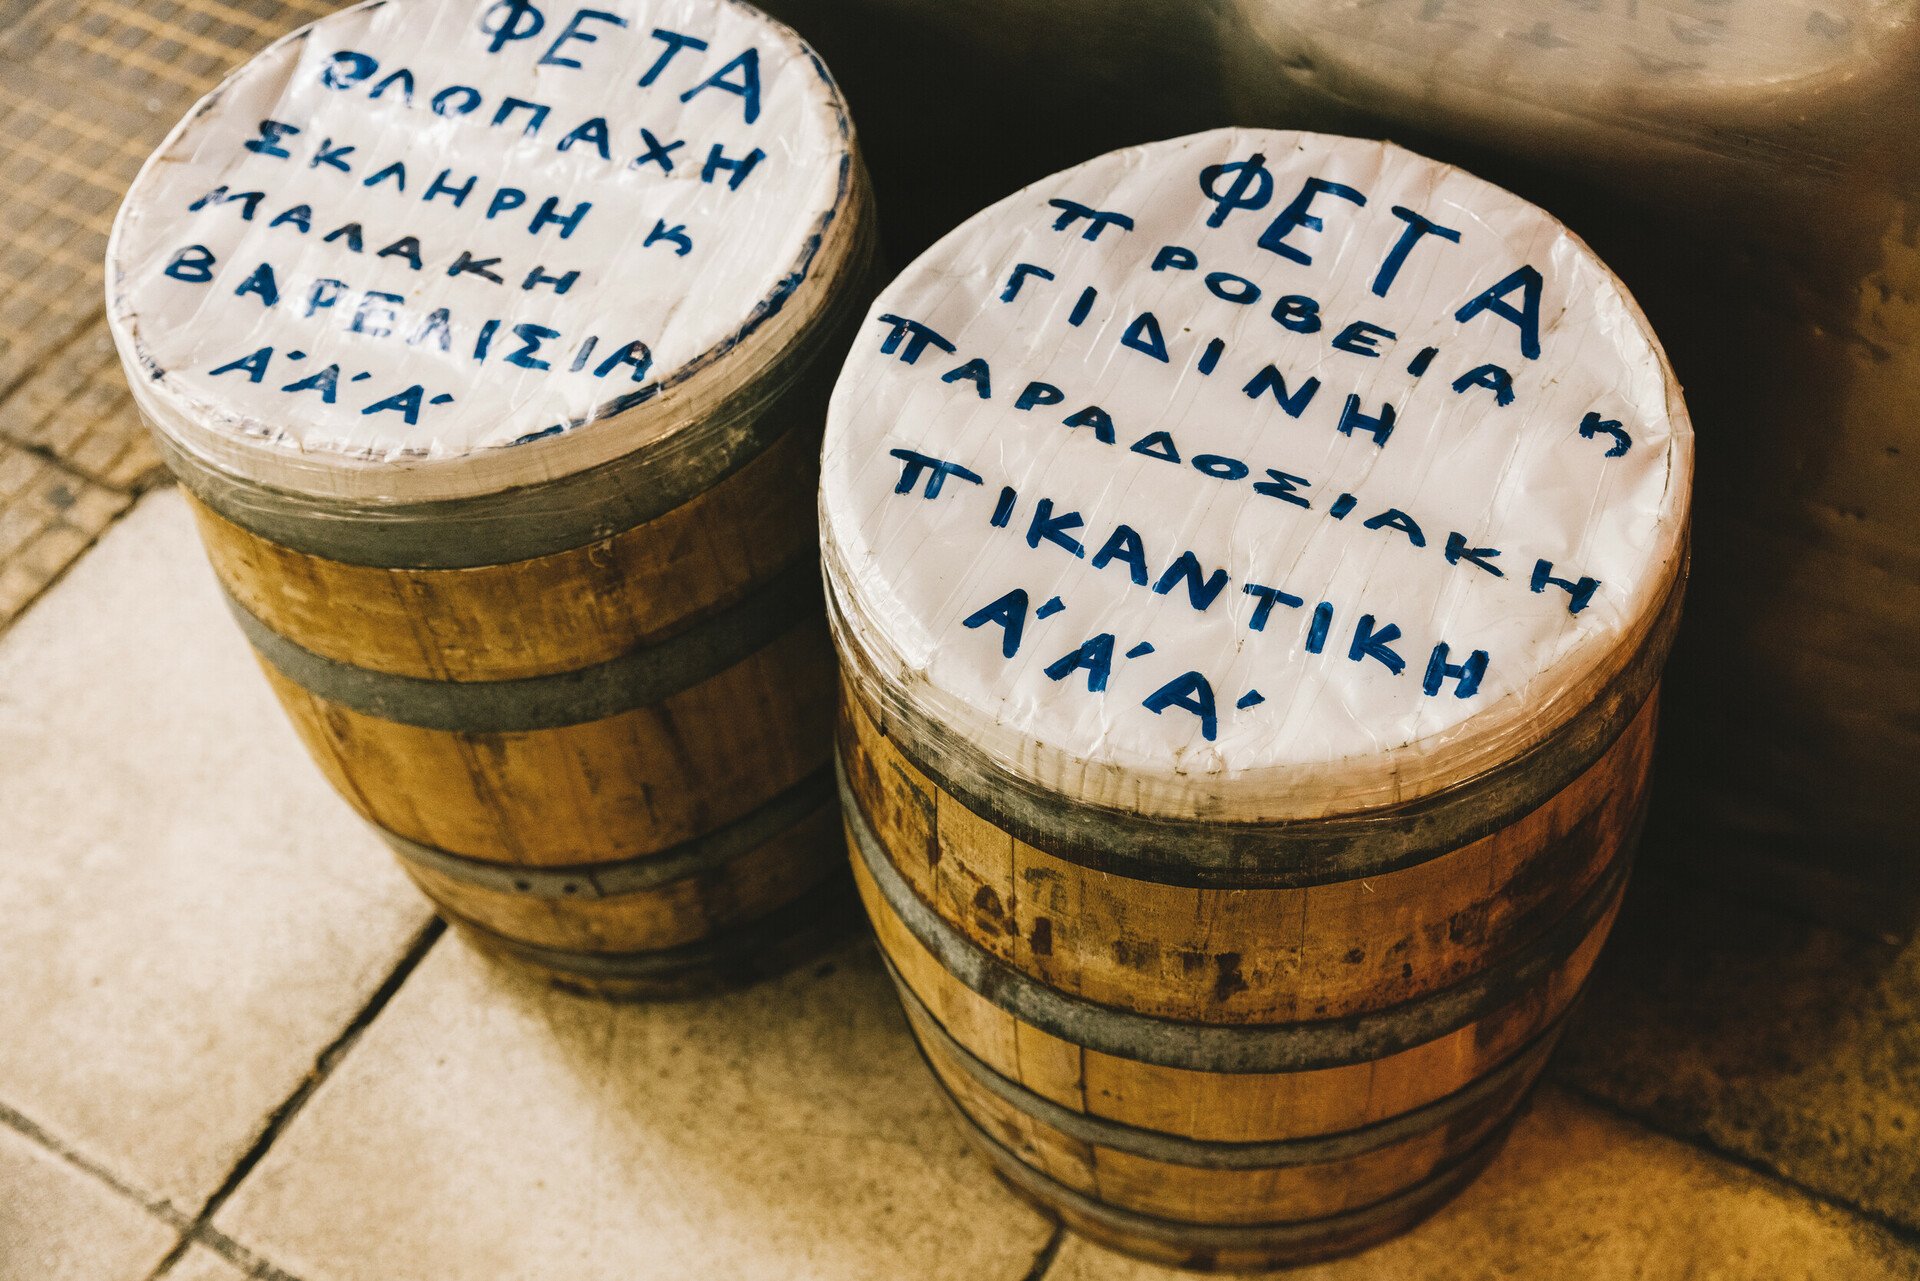 ΦΕΤΑ
ΟΛΟΠΑΧΗ
ΣΚΛΗΡΗ κ
ΜΑΛΑΚΗ
ΒΑΡΕΛΙΣΙΑ
Α΄Α΄Α΄
ΦΕΤΑ
ΠΡΟΒΕΙΑ κ
ΓΙΔΙΝΗ
ΠΑΡΑΔΟΣΙΑΚΗ
ΠΙΚΑΝΤΙΚΗ
Α΄Α΄Α΄